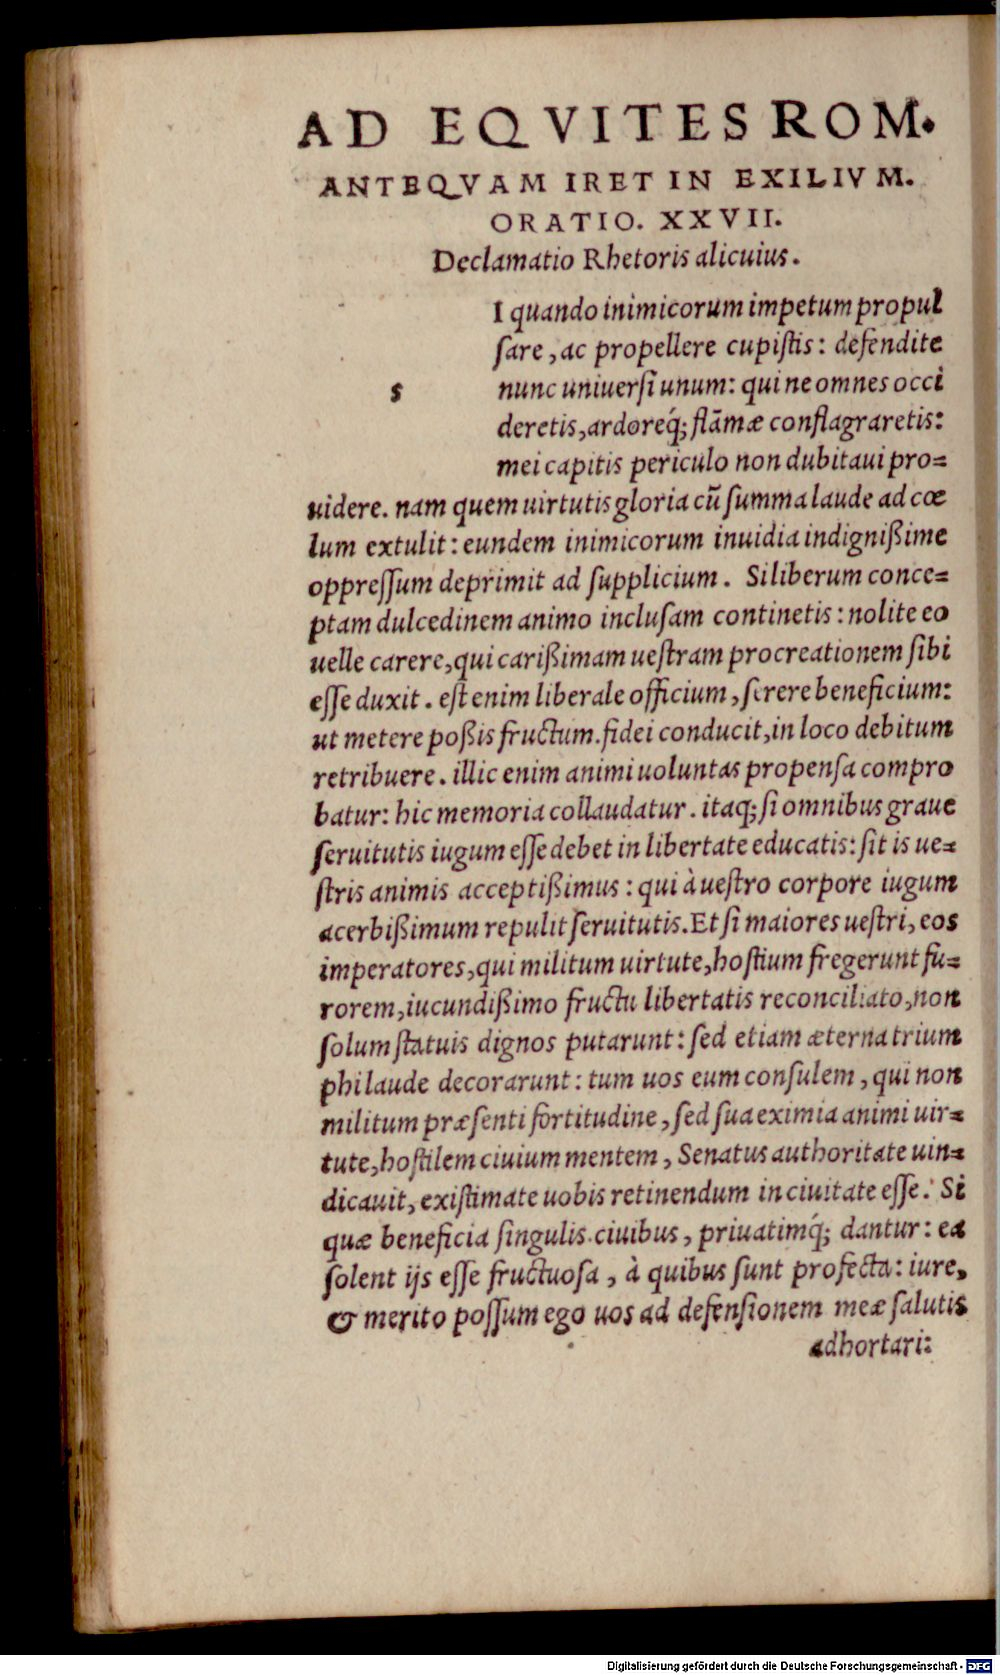 AD EQVITES ROM.
ANTEQVAM IRET IN EXILIVM.
ORATIO. XXVII.
Declamatio Rhetoris alicuius.
I quando inimicorum impetum propul
ſare, ac propellere cupiſtis: defendite
s nunc uniuerſi unum: qui ne omnes occi
deretis, ardoreq́; flāmæ conflagraretis:
mei capitis periculo non dubitaui pro=
uidere. nam quem uirtutis gloria cū ſumma laude ad cœ
lum extulit: eundem inimicorum inuidia indignißime
oppreſſum deprimit ad ſupplicium. Si liberum conce=
ptam dulcedinem animo incluſam continetis: nolite eo
uelle carere, qui carißimam ueſtram procreationem ſibi
eſſe duxit. eſt enim liberale officium, ſerere beneficium:
ut metere poßis fructum. fidei conducit, in loco debitum
retribuere. illic enim animi uoluntas propenſa compro
batur: hic memoria collaudatur. itaq; ſi omnibus graue
ſeruitutis iugum eſſe debet in libertate educatis: ſit is ue=
ſtris animis acceptißimus: qui à ueſtro corpore iugum
acerbißimum repulit ſeruitutis. Et ſi maiores ueſtri, eos
imperatores, qui militum uirtute, hoſtium fregerunt fu=
rorem, iucundißimo fructu libertatis reconciliato, non
ſolum ſtatuis dignos putarunt: ſed etiam æterna trium
phi laude decorarunt: tum uos eum conſulem, qui non
militum præſenti fortitudine, ſed sua eximia animi uir=
tute, hoſtilem ciuium mentem, Senatus authoritate uin=
dicauit, exiſtimate uobis retinendum in ciuitate eſſe. Si
quæ beneficia ſingulis ciuibus, priuatimq́; dantur: ea
ſolent ijs eſſe fructuoſa, à quibus ſunt profecta: iure,
& merito poſſum ego uos ad defenſionem meæ ſalutis
adhortari:
Digitalisierung gefördert durch die Deutsche Forschungsgemeinschaft - DFG